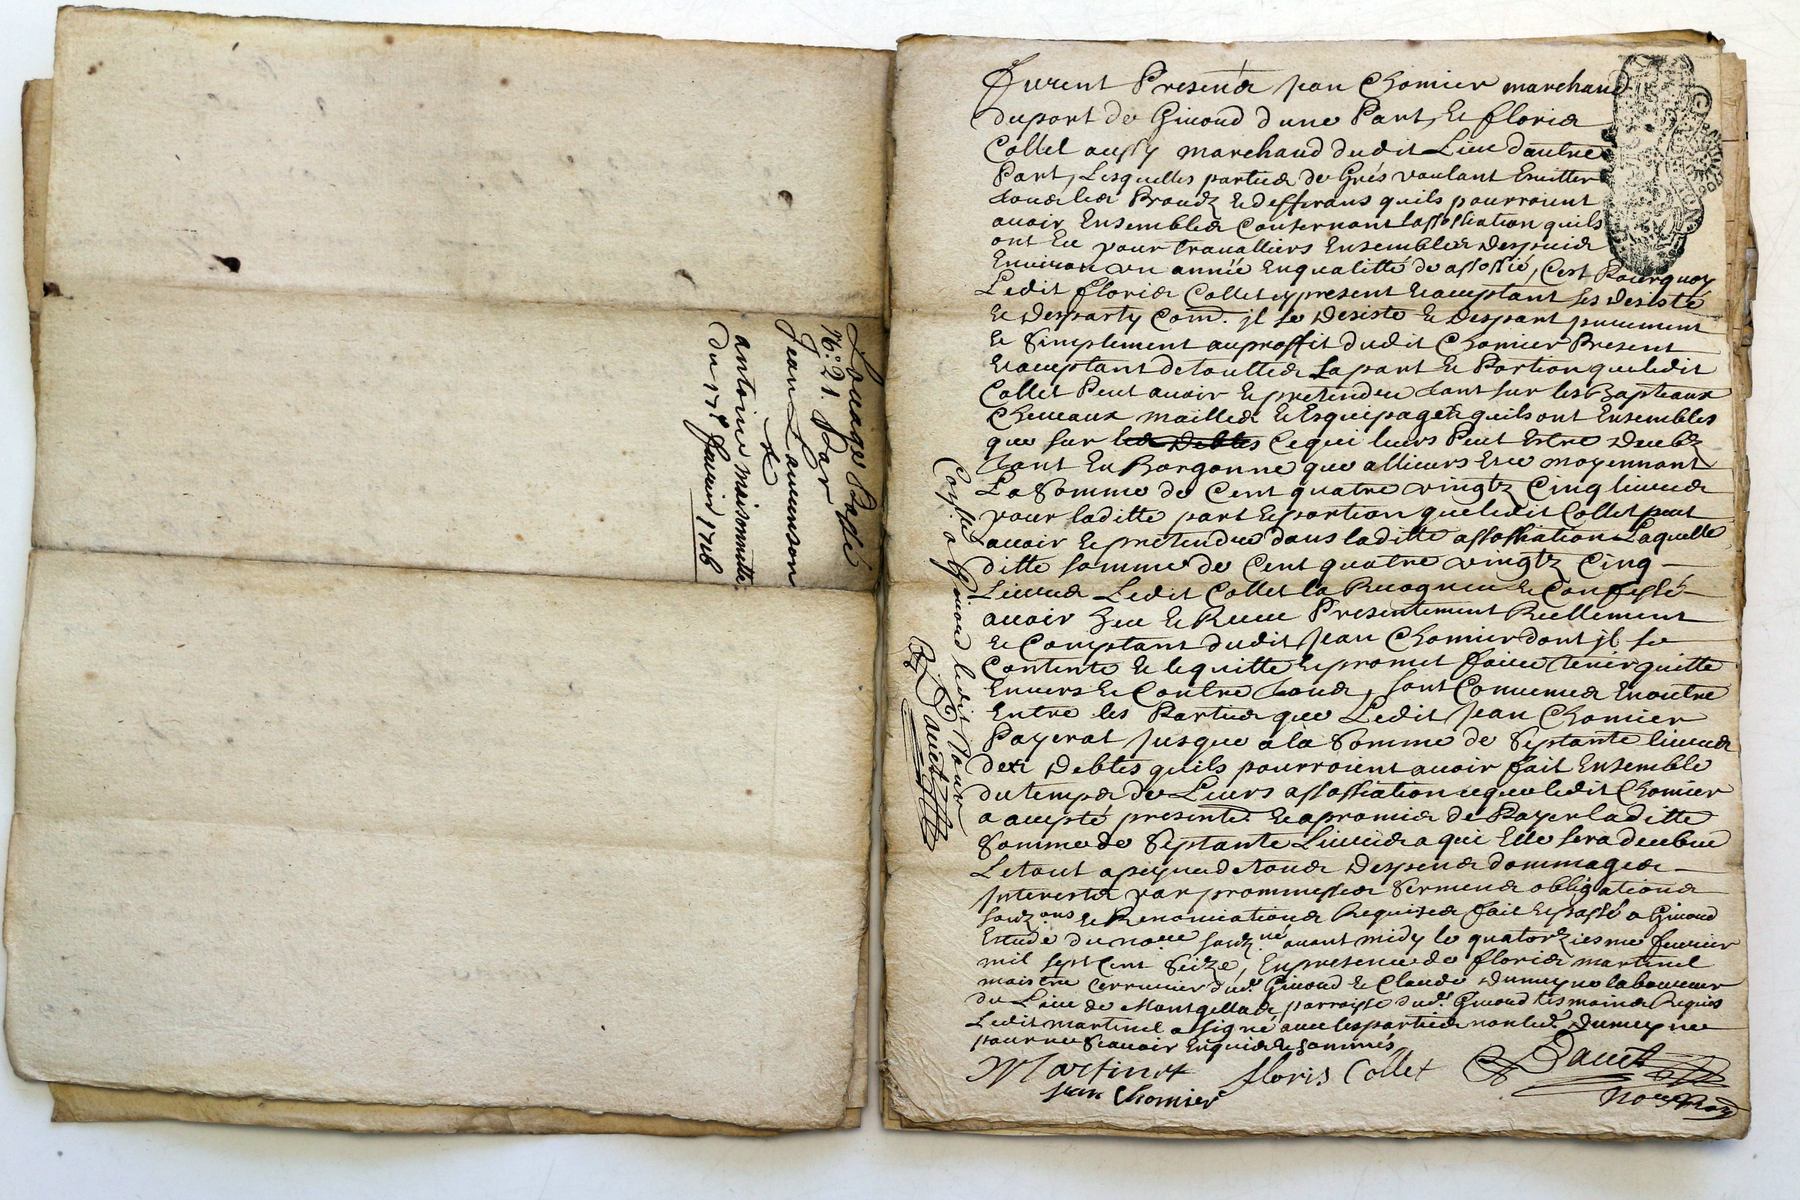 Louage Passé
N.° 21. Par
Jean Laurenson
&
antoine maisonnette
du 17.e feurier 1716
Furent Presents Jean Chomier marchand
du port de Giuord d une Part, Et floris
Collet aussy marchand dudit Lieu d autre
Part, Lesquelles parties de Grés voulant Euitter
tous les Procedz et differans quils pourroient
auoir Ensembles Consernant lassossiation quils
ont Eu pour trauallier Ensembles Despuis
Enuiron vn année En qualitté de assossié, C'est Pourquoy
Ledit floris Collet cy present et aceptant ses desisté
et Desparty Com.e jl se Desiste et Despart purement
et simplement au proffit dudit Chomier Present
et aceptant de touttes sa part et Portion que ledit
Collet Peut auoir et pretendre tant sur les bapteaux
Cheuaux mailles et Esquipages quils ont Ensembles
que sur les Debtes Ce qui leurs Peut Estre deubz
tant En Borgonne que allieurs et ce moyennant
La somme de Cent quatre vingtz Cinq liures
pour laditte part et portion que ledit Collet peut
auoir et pretendre dans laditte assossiation Laquelle
ditte somme de Cent quatre vingtz Cinq
Liures Ledit Collet la Recogneu et Confessé
auoir heu et Receu Presentement Reellement
et Comptant dudit Jean Chomier dont jl se
Contente et le quitte et promet faire tenir quitte
Enuers et Contre tous, sont Conuenues En outre
Entre les Parties que Ledit Jean Chomier
Payerat Jusque a la somme de septante liures
des Debtes quils pourroient auoir fait Ensemble
du temps de Leurs assossiation ce que ledit Chomier
a acepté et a promis de Payer laditte
somme de septante Liures a qui Elle sera deubue
Le tout a peyne de tous Despens dommages
Interests par prommesses serments obligations
et Renonciations Requises fait et passé a Giuord
Estude du no.re souz.né auant midy le quatorziesme feurier
mil sept Cent seize, En presence de floris martinet
maistre serrurier dud.t Giuord et Claude laboureur
du Lieu de parroisse dud.t Giuord tesmoins Requis
Ledit martinet a signé auec les parties non led.t
pour ne scauoir Enquis et sommés
Martinet floris Collet Dauet
Jean Chomier
a Giuord ledit Jour
Dauet